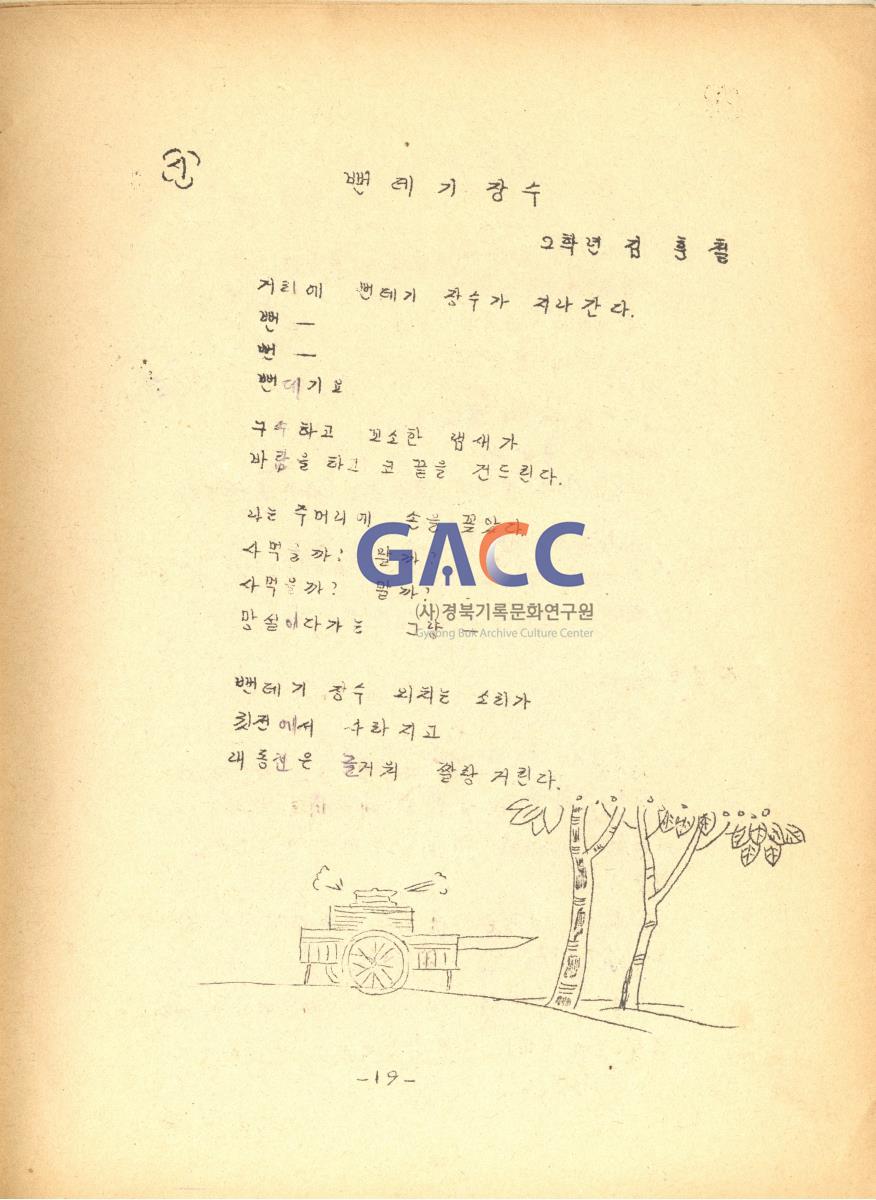 시
뻔데기장수
2학년 김훈철
거리에 뻔데기 장수가 지나간다.
뻔 —
뻔 —
뻔데기요
구수하고 꼬소한 냄새가
바람을 타고 코 끝을 건드린다.
나는 주머리에 손을 꽂았다.
사먹을까? 말까?
사먹을까? 말까?
망설이다가는 그냥 —
뻔데기 장수 외치는 소리가
뒷전에서 사라지고
내 동전은 즐거히 짤랑거린다.
GACC
(사)경북기록문화연구원
Gyeong Buk Archive Culture Center
-19-